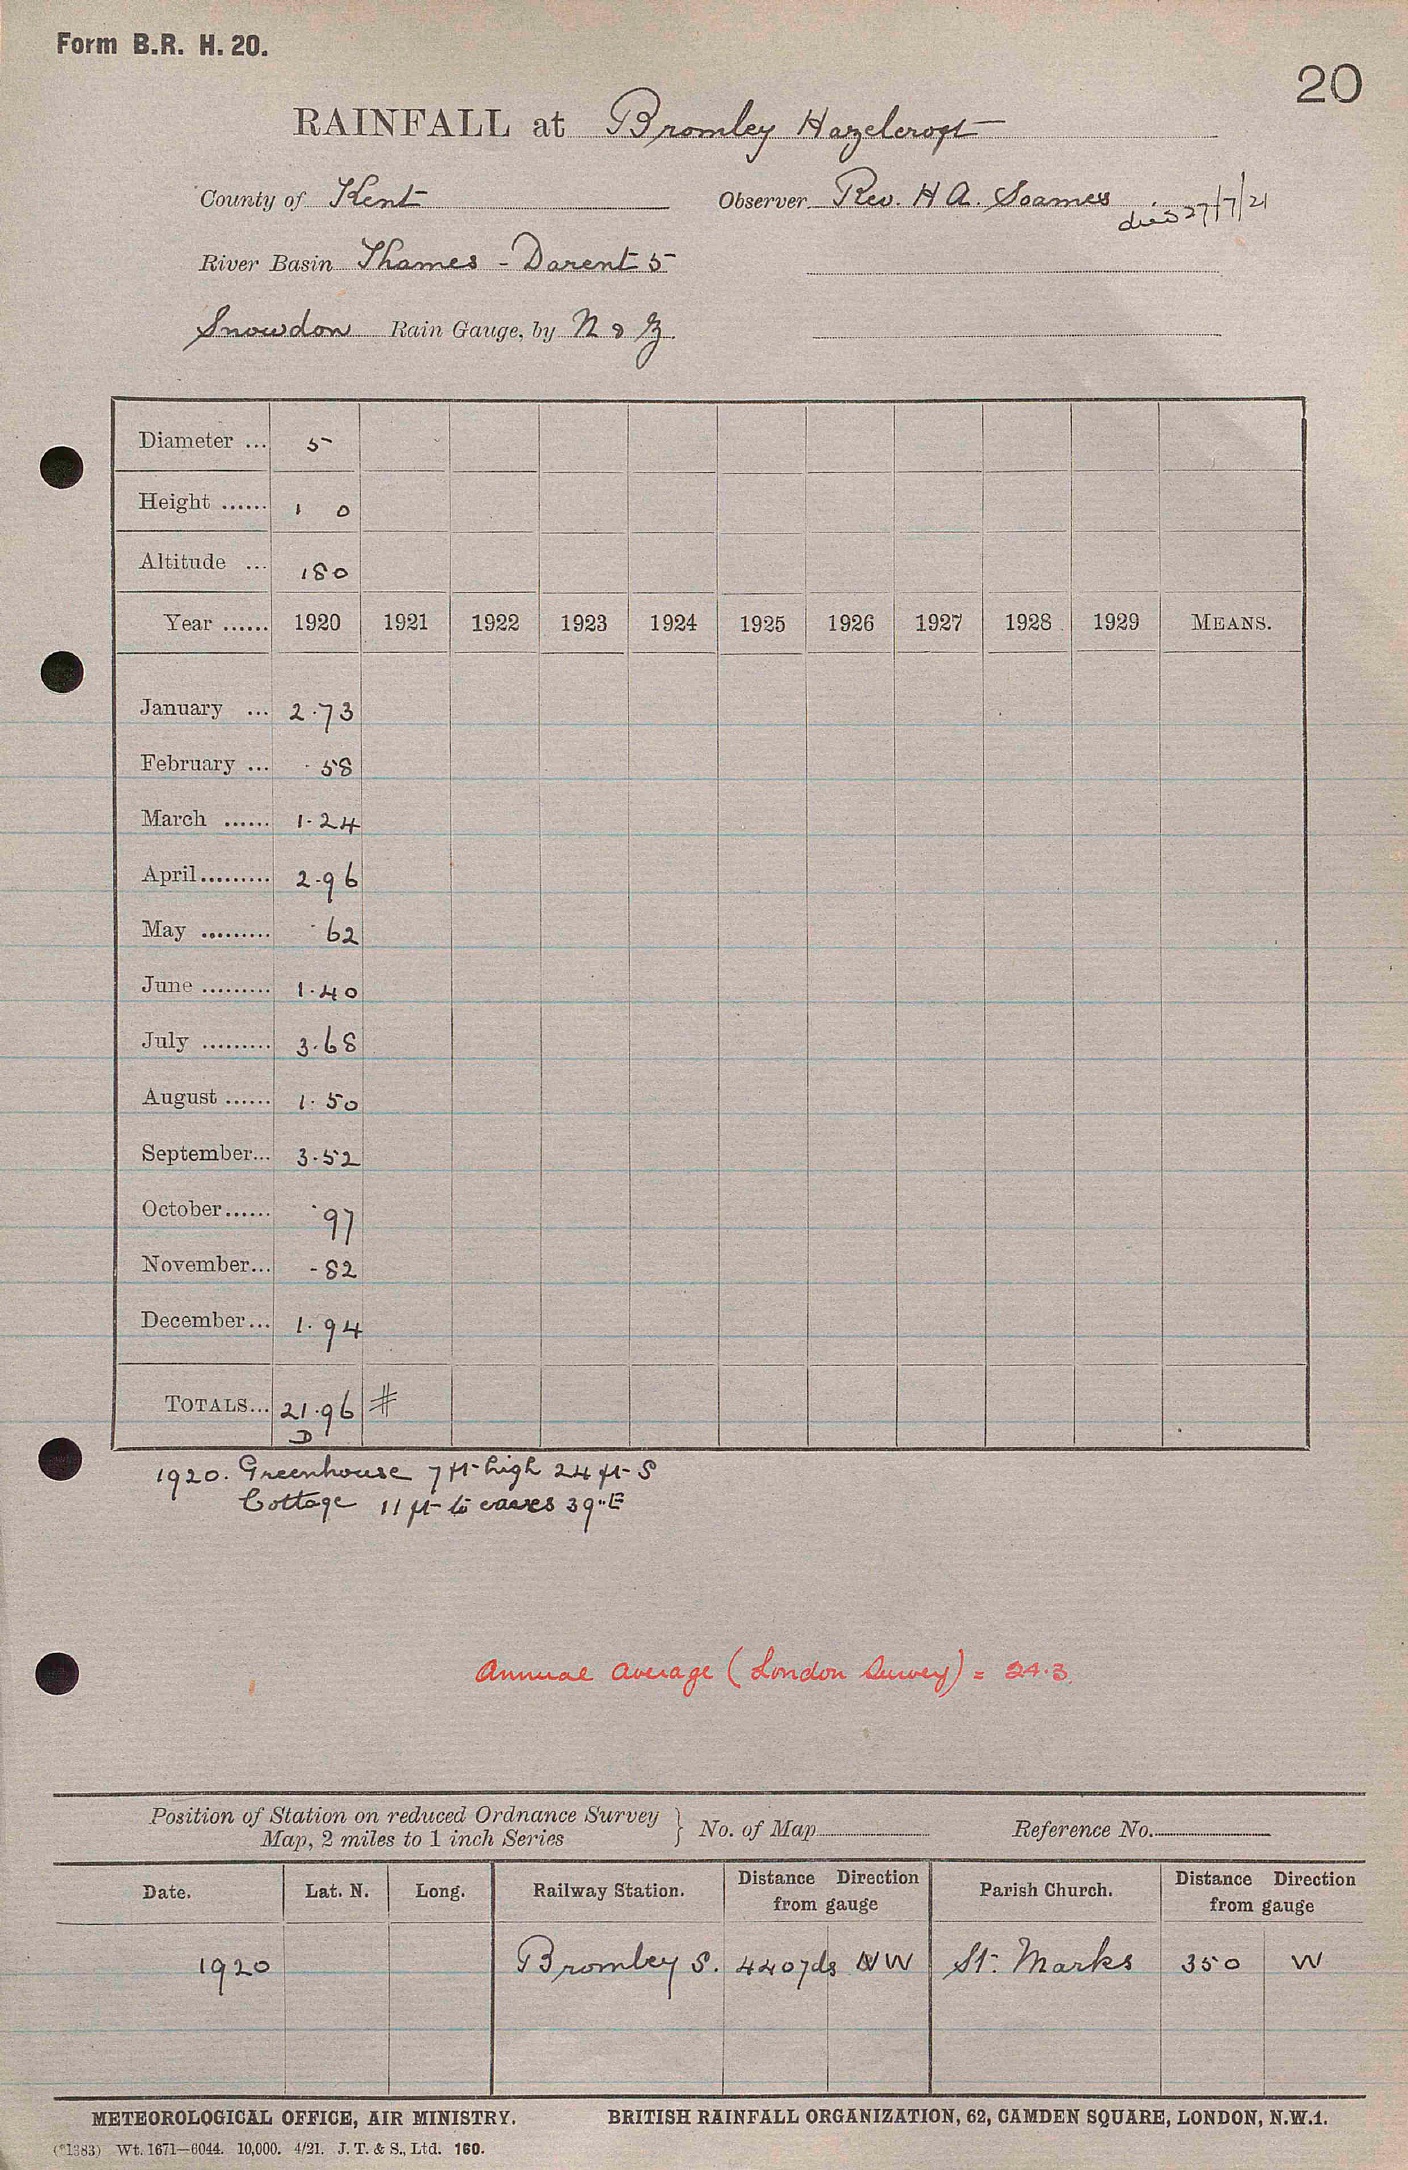 Form B.R. H. 20.
20
RAINFALL at Bromley Hazelcroft
County of Kent Observer Rev. H A. Soames died 27/7/21
River Basin Thames - Darent 5
Snowdon Rain Gauge, by N & Z.
Diameter ... 5
Height ...... 1 0
Altitude ... 180
Year ...... 1920 1921 1922 1923 1924 1925 1926 1927 1928 1929 MEANS.
January ... 2.73
February ... .58
March ...... 1.24
April ......... 2.96
May ......... .62
June ......... 1.40
July ......... 3.68
August ...... 1.50
September... 3.52
October...... .97
November... .82
December... 1.94
TOTALS... 21.96 #
D
1920. Greenhouse 7 ft high 24 ft S
Cottage 11 ft to eaves 39 " E
Annual Average (London Survey) = 24.3.
Position of Station on reduced Ordnance Survey
Map, 2 miles to 1 inch Series } No. of Map Reference No.
Date. Lat. N. Long. Railway Station. Distance Direction from gauge Parish Church. Distance Direction from gauge
1920 Bromley S. 440yds NW St. Marks 350 W
METEOROLOGICAL OFFICE, AIR MINISTRY. BRITISH RAINFALL ORGANIZATION, 62, CAMDEN SQUARE, LONDON, N.W.1.
(*1383) Wt. 1671—6044. 10,000. 4/21. J. T. & S., Ltd. 160.